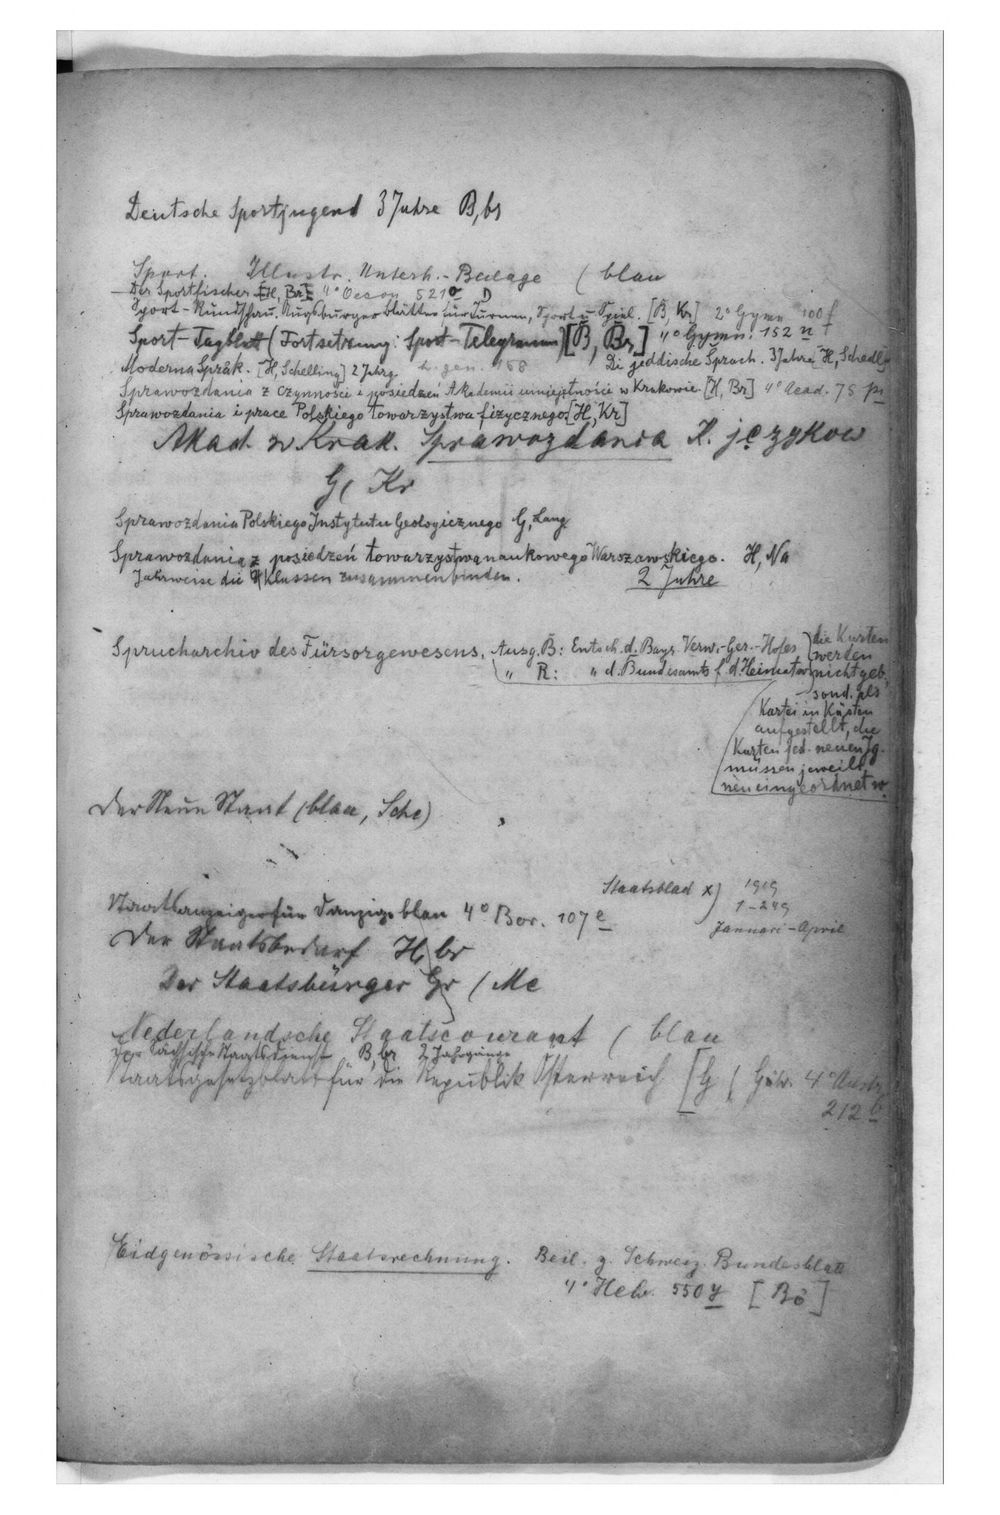 Deutsche Sportjugend 3 Jahre B, br
Sport. Illustr. Unterh.-Beilage ( blau
Der Sportfischer [H, Br] 4° Oecon. 521 
Sport-Rundschau. Augsburger Blätter für Turnen, Sport u. Spiel. [B, Kr] 2° Gymn. 100 f
Sport-Tagblatt (Fortsetzung: Sport-Telegramm) [B, Br] 4° Gymn. 152 n
Moderna Språk. [H, Schelling] 2 Jahrg. L. gen. 168 Di jeddische Sprach. 3 Jahre [H, Schedl]
Sprawozdania z czynności i posiedzeń Akademii umiejętności w Krakowie [H, Br] 4° Acad. 75
Sprawozdania i prace Polskiego towarzystwa fizycznego [H, Kr]
Akad. w Krak. Sprawozdania K. językow
G ( Kr
Sprawozdania Polskiego Instytutu Geologicznego G, Lang
Sprawozdania z posiedzeń towarzystwa naukowego Warszawskiego. H, Na
Jahrweise die Klassen zusammenbinden. 2 Jahre
Sprucharchiv des Fürsorgewesens. Ausg. B: Entsch. d. Bayr. Verw.-Ger.-Hofes
" R: " d. Bundesamts f. d. Heimatw.
die Karten
werden
nicht geb.,
sond. als
Kartei in Kästen
aufgestellt, die
Karten jed. neuen Jg.
müssen jeweils
neu eingeordnet w.
Der Neue Staat (blau, Sche)
Staatsblad x) 1919
1-249
Januari-April
Staatsanzeiger für Danzig blau 4° Bor. 107 e
Der Staatsbedarf H, br
Der Staatsbürger Gr ( Mc
Nederlandsche Staatscourant ( blau
Der Sächsische Staatsdienst B, br 2 Jahrgänge
Staatsgesetzblatt für die Republik Österreich [G ( 4° Austr.
212 b
Eidgenössische Staatsrechnung. Beil. z. Schweiz. Bundesblatt
4° Helv. 550 y [Bö]